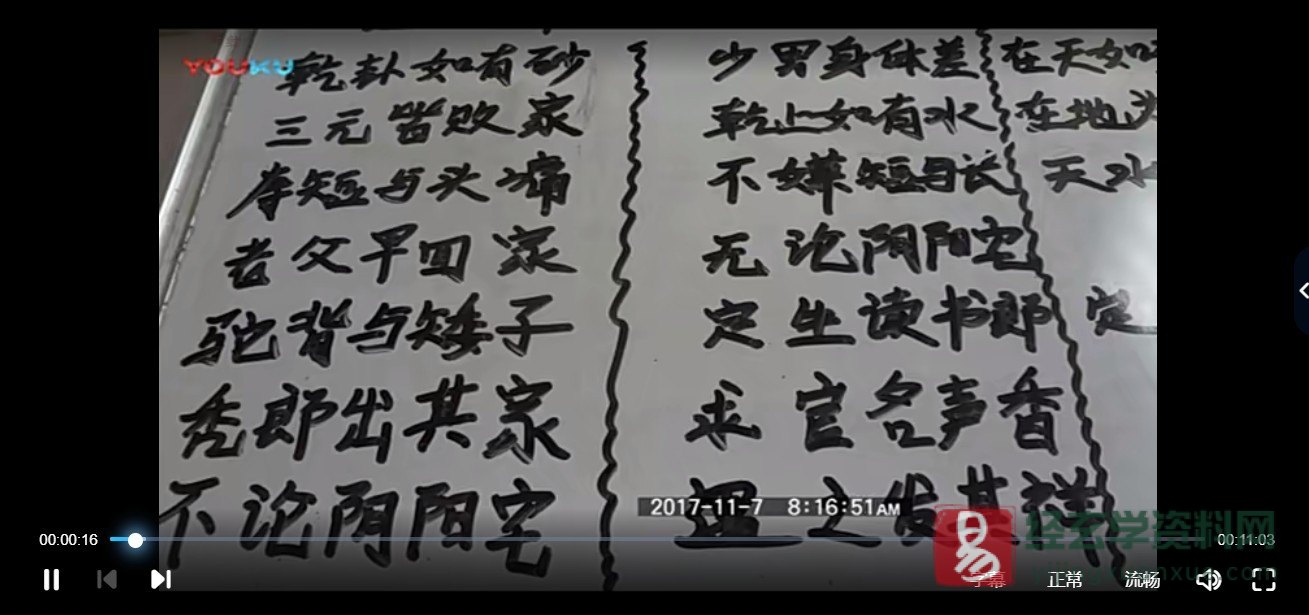 YOUKU
乾卦如有砂
三元皆败家
孪短与头痛
老父早回家
驼背与矮子
秃郎出其家
不论阴阳宅
少男身体差
乾上如有水
不嫌短与长
无论阴阳宅
定生读书郎
求官名声香
遇之发其祥
在天如
在地为
天水
定
2017-11-7 8:16:51AM
易
经玄学资料网
00:00:16
00:11:03
字幕
正常
流畅